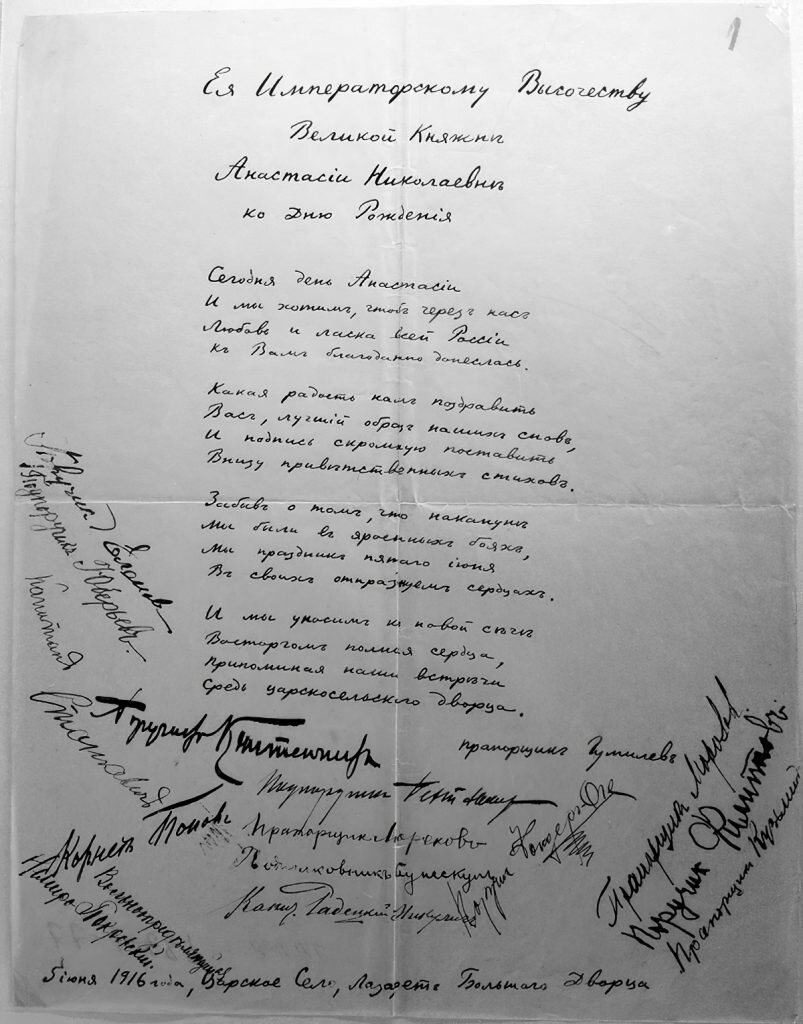 1
Ея Императорскому Высочеству
Великой Княжнѣ
Анастасіи Николаевнѣ
ко Дню Рожденія
Сегодня день Анастасіи
И мы хотимъ, чтобъ черезъ насъ
Любовь и ласка всей Россіи
Къ Вамъ благодарно донеслась.
Какая радость намъ поздравить
Васъ, лучшій образъ нашихъ сновъ,
И подпись скромную поставить
Внизу привѣтственныхъ стиховъ.
Забывъ о томъ, что наканунѣ
Мы были въ яростныхъ бояхъ,
Мы праздникъ пятаго іюня
Въ своихъ отпразднуемъ сердцахъ.
И мы уносимъ къ новой сѣчѣ
Восторгомъ полныя сердца,
Припоминая наши встрѣчи
Средь царскосельскаго дворца.
прапорщикъ Гумилевъ
Поручикъ
Подпоручикъ Юрьевъ
Капитанъ
Поручикъ
Подпоручикъ
Корнетъ Поповъ
Прапорщикъ
Подполковникъ
Вольноопредѣляющійся
Покровскій.
Капит. Радецкій-Микуличъ
Прапорщикъ
Поручикъ
Прапорщикъ
5 іюня 1916 года, Царское Село, Лазаретъ Большого Дворца